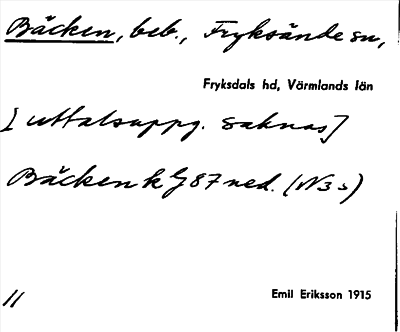 Bäcken, beb., Fryksände sn,
Fryksdals hd, Värmlands län
[uttalsuppg. saknas]
Bäcken k G 87 ned. (N3 s)
11
Emil Eriksson 1915